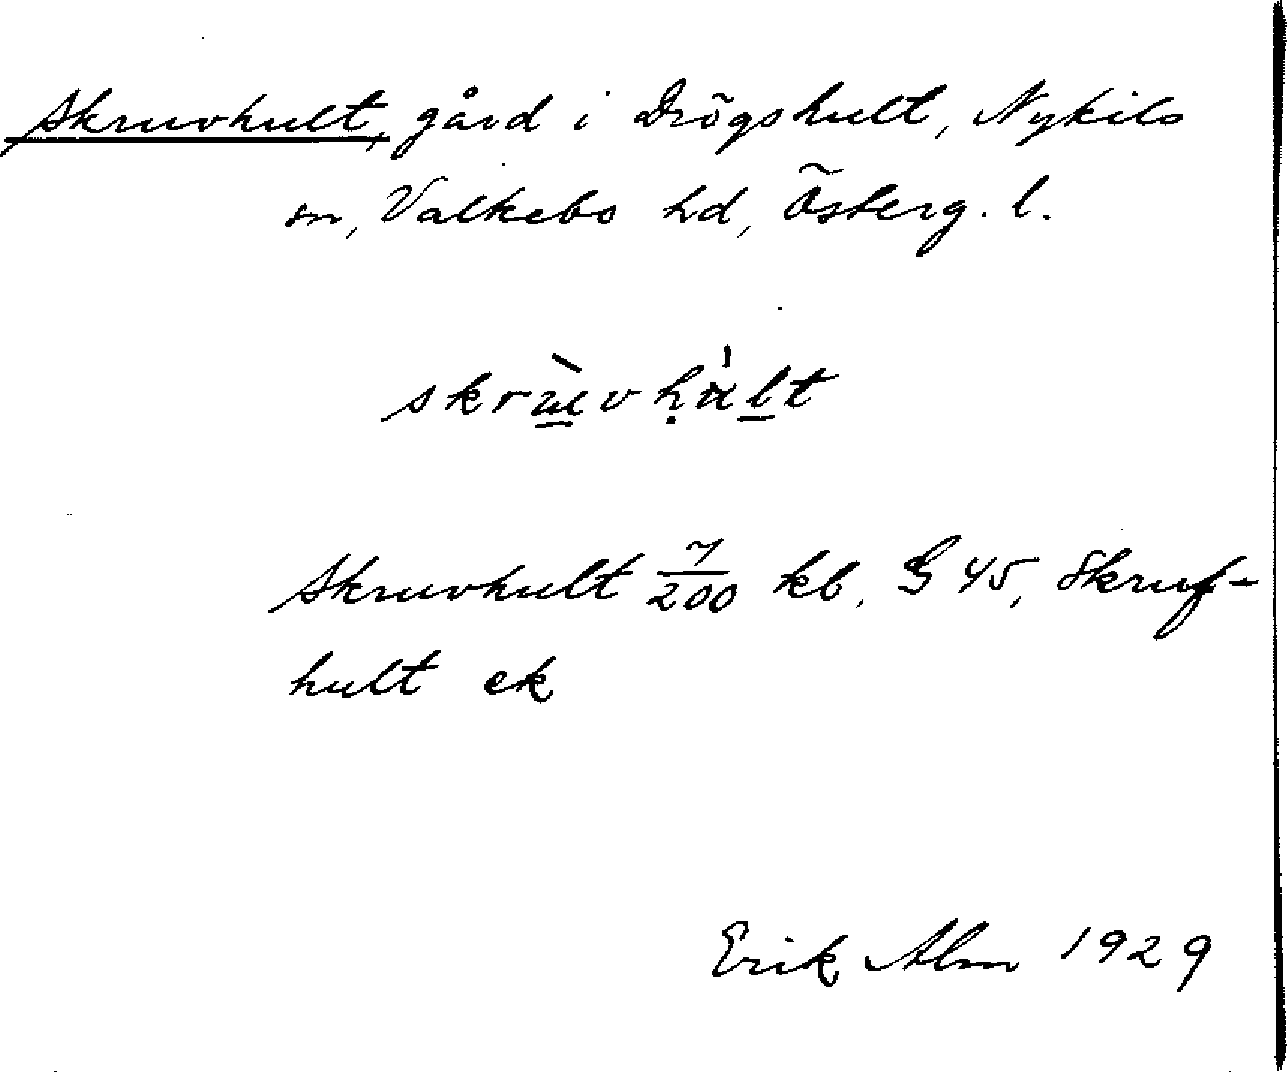 Skruvhult, gård i Drögshult, Nykils
sn, Valkebo hd, Österg. l.
Skruvhult 7/200 kb. G 45, Skruf-
hult ek
Erik Alm 1929